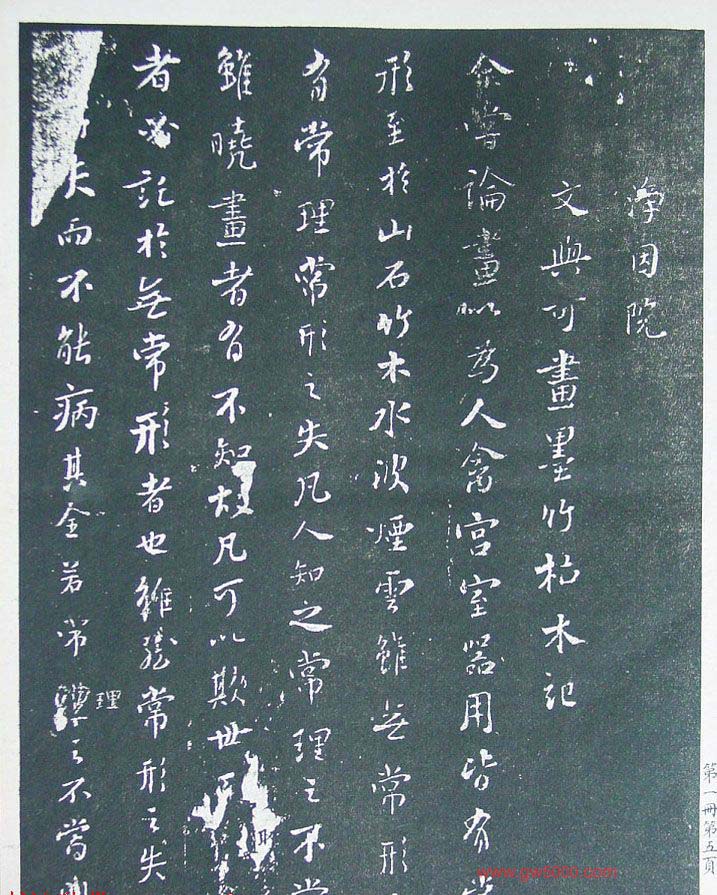 淨因院
文與可畫墨竹枯木記
余嘗論畫以爲人禽宮室器用皆有常
形至於山石竹木水波煙雲雖無常形
有常理常形之失凡人知之常理之不當
雖曉畫者有不知故凡可以欺世而取
者必託於無常形者也雖然常形之失
所失而不能病其全若常理之不當
第一冊第五頁